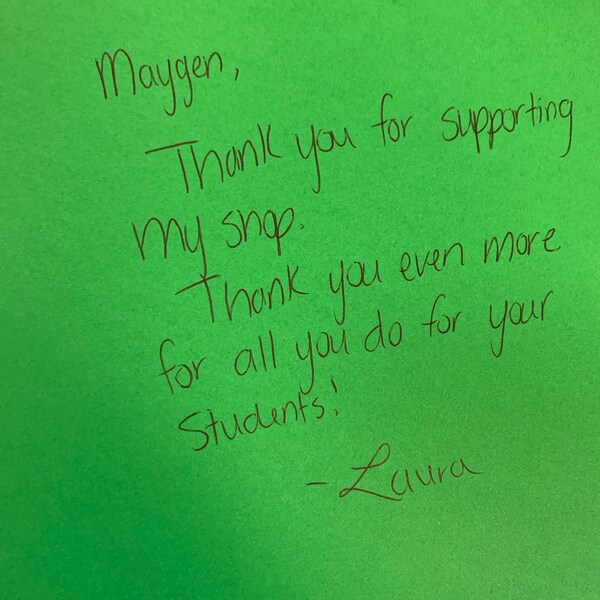 Maygen,
Thank you for supporting
my shop.
Thank you even more
for all you do for your
Students!
- Laura